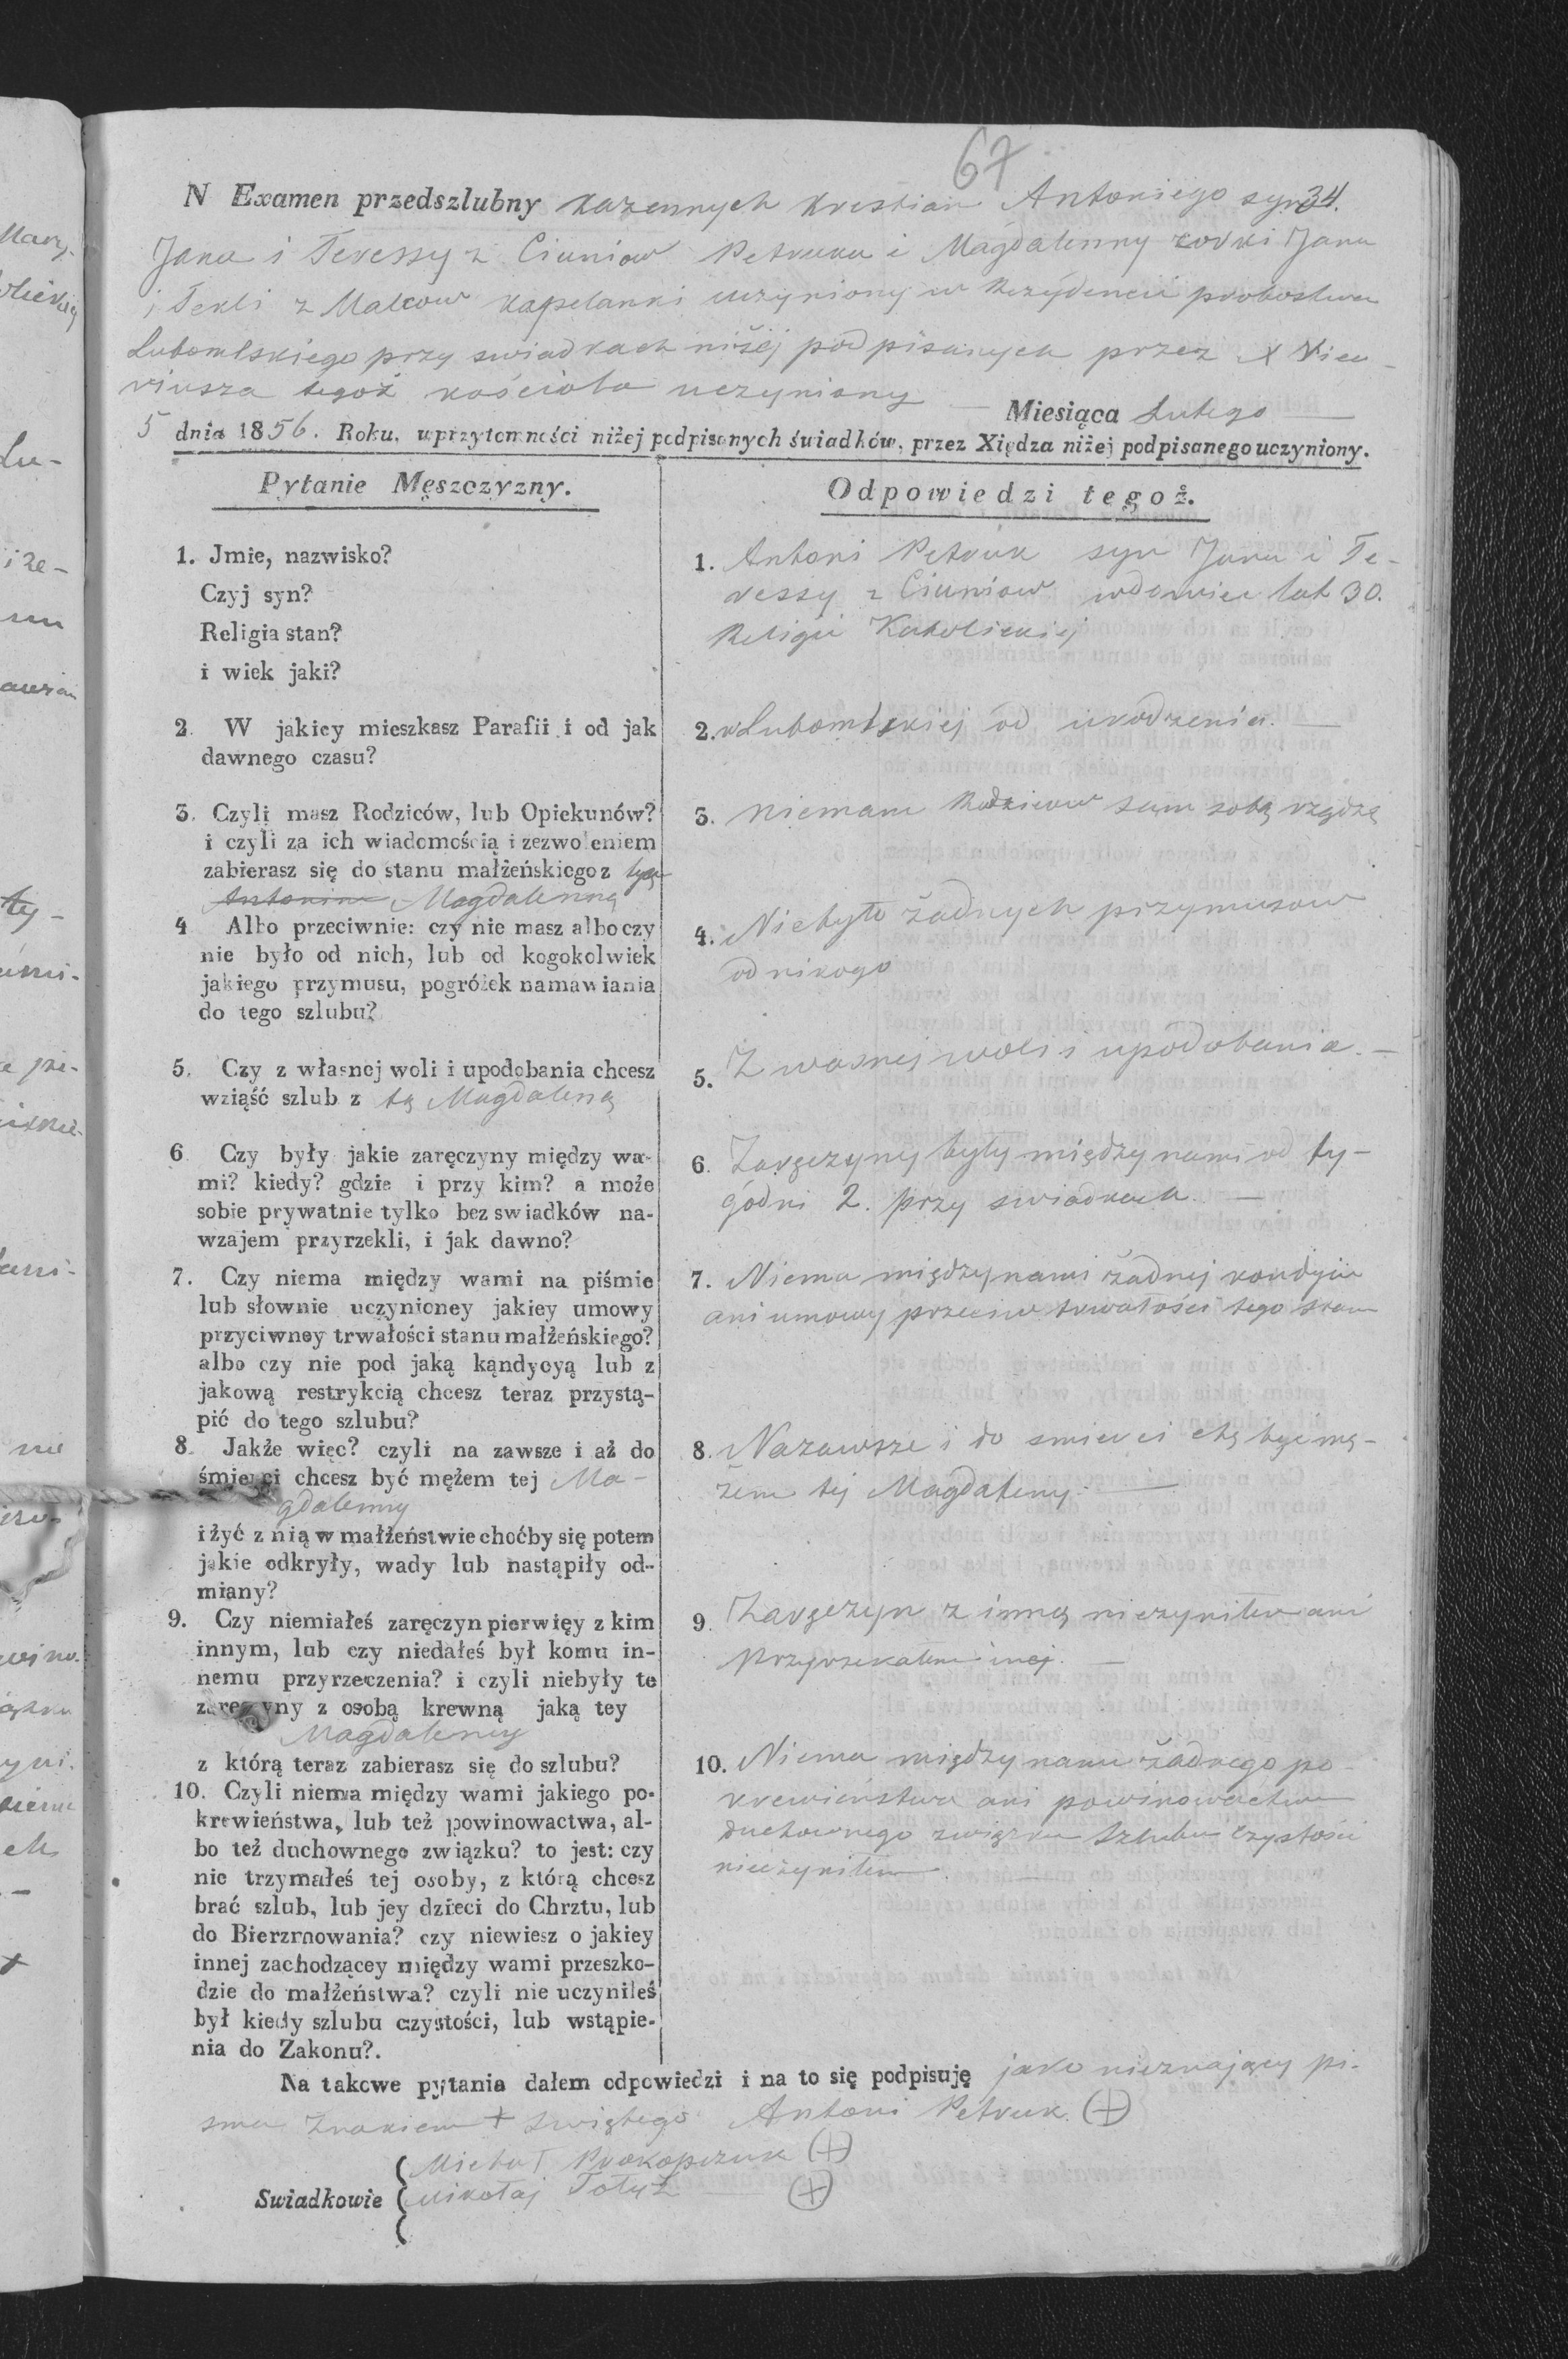 67
N Examen przedszlubny kazennych krestian Antoniego syna 34.
Jana i Teressy z Ciuniow Petruka i Magdalenny corki Jana
i Tekli z Malcow kapelanki uczyniony w Rezydencii probostwa
Lubomlskiego przy swiadkach niżéj podpisanych przez X Vica
riusza tegoż kościoła uczyniony — Miesiąca Lutego —
5 dnia 1856. Roku, w przytomności niżej podpisanych świadków, przez Xiędza niżej podpisanego uczyniony.
Pytanie Męszczyzny.
Odpowiedzi tegoż.
1. Jmie, nazwisko?
Czyj syn?
Religia stan?
i wiek jaki?
1. Antoni Petruk syn Jana i Te-
ressy z Ciuniow wdowiec lat 30.
Religii Katolickiej
2. W jakiey mieszkasz Parafii i od jak
dawnego czasu?
2. w Lubomlskiej od urodzenia. —
3. Czyli masz Rodziców, lub Opiekunów?
i czyli za ich wiadomością i zezwoleniem
zabierasz się do stanu małżeńskiego z tyą
Antonina Magdalenną
3. niemam Rodzicow sam sobą rządzę
4 Albo przeciwnie: czy nie masz albo czy
nie było od nich, lub od kogokolwiek
jakiego przymusu, pogróżek namawiania
do tego szlubu?
4. Niebyło żadnych przymusow
od nikogo
5. Czy z własnej woli i upodobania chcesz
wziąść szlub z tą Magdaleną
5. Z wasnej woli i upodobania. —
6 Czy były jakie zaręczyny między wa-
mi? kiedy? gdzie i przy kim? a może
sobie prywatnie tylko bez swiadków na-
wzajem przyrzekli, i jak dawno?
6. Zaręczyny były między nami od ty-
godni 2. przy swiadkach. —
7. Czy niema między wami na piśmie
lub słownie uczynioney jakiey umowy
przyciwney trwałości stanu małżeńskiego?
albo czy nie pod jaką kąndycyą lub z
jakową restrykcią chcesz teraz przystą-
pić do tego szlubu?
7. Niema między nami żadnej kondycii
ani umowy przeciw trwałości tego stanu
8. Jakże więc? czyli na zawsze i aż do
śmierci chcesz być mężem tej Ma-
gdalenny
i żyć z nią w małżeństwie choćby się potem
jakie odkryły, wady lub nastąpiły od-
miany?
8. Nazawsze i do smierci chą być mę-
żem tej Magdaleny. —
9. Czy niemiałeś zaręczyn pierwięy z kim
innym, lub czy niedałeś był komu in-
nemu przyrzeczenia? i czyli niebyły te
zaręczyny z osobą krewną jaką tey
Magdalenny
z którą teraz zabierasz się do szlubu?
9. Zaręczyn z inną nieczyniłem ani
przyrzekałem inej. —
10. Czyli niema między wami jakiego po-
krewieństwa, lub też powinowactwa, al-
bo też duchownego związku? to jest: czy
nie trzymałeś tej osoby, z którą chcesz
brać szlub, lub jey dzieci do Chrztu, lub
do Bierzmowania? czy niewiesz o jakiey
innej zachodzącey między wami przeszko-
dzie do małżeństwa? czyli nie uczyniłeś
był kiedy szlubu czystości, lub wstąpie-
nia do Zakonu?.
10. Niema między nami żadnego po-
krewieństwa ani powinowactwa
duchownego związku szlubu czystości
nieczyniłem. —
Na takowe pytania dałem odpowiedzi i na to się podpisuję jako nieznający pi-
sma znakiem + swiętego Antoni Petruk (+)
Swiadkowie
Michał Prokopczuk (+)
Mikołaj Totyż — (+)